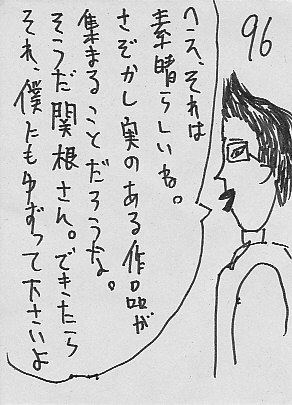 96
へえ、それは
素晴らしいね。
さぞかし実のある作品が
集まることだろうな。
そうだ関根さん。できたら
それ、僕にもゆずって下さいよ